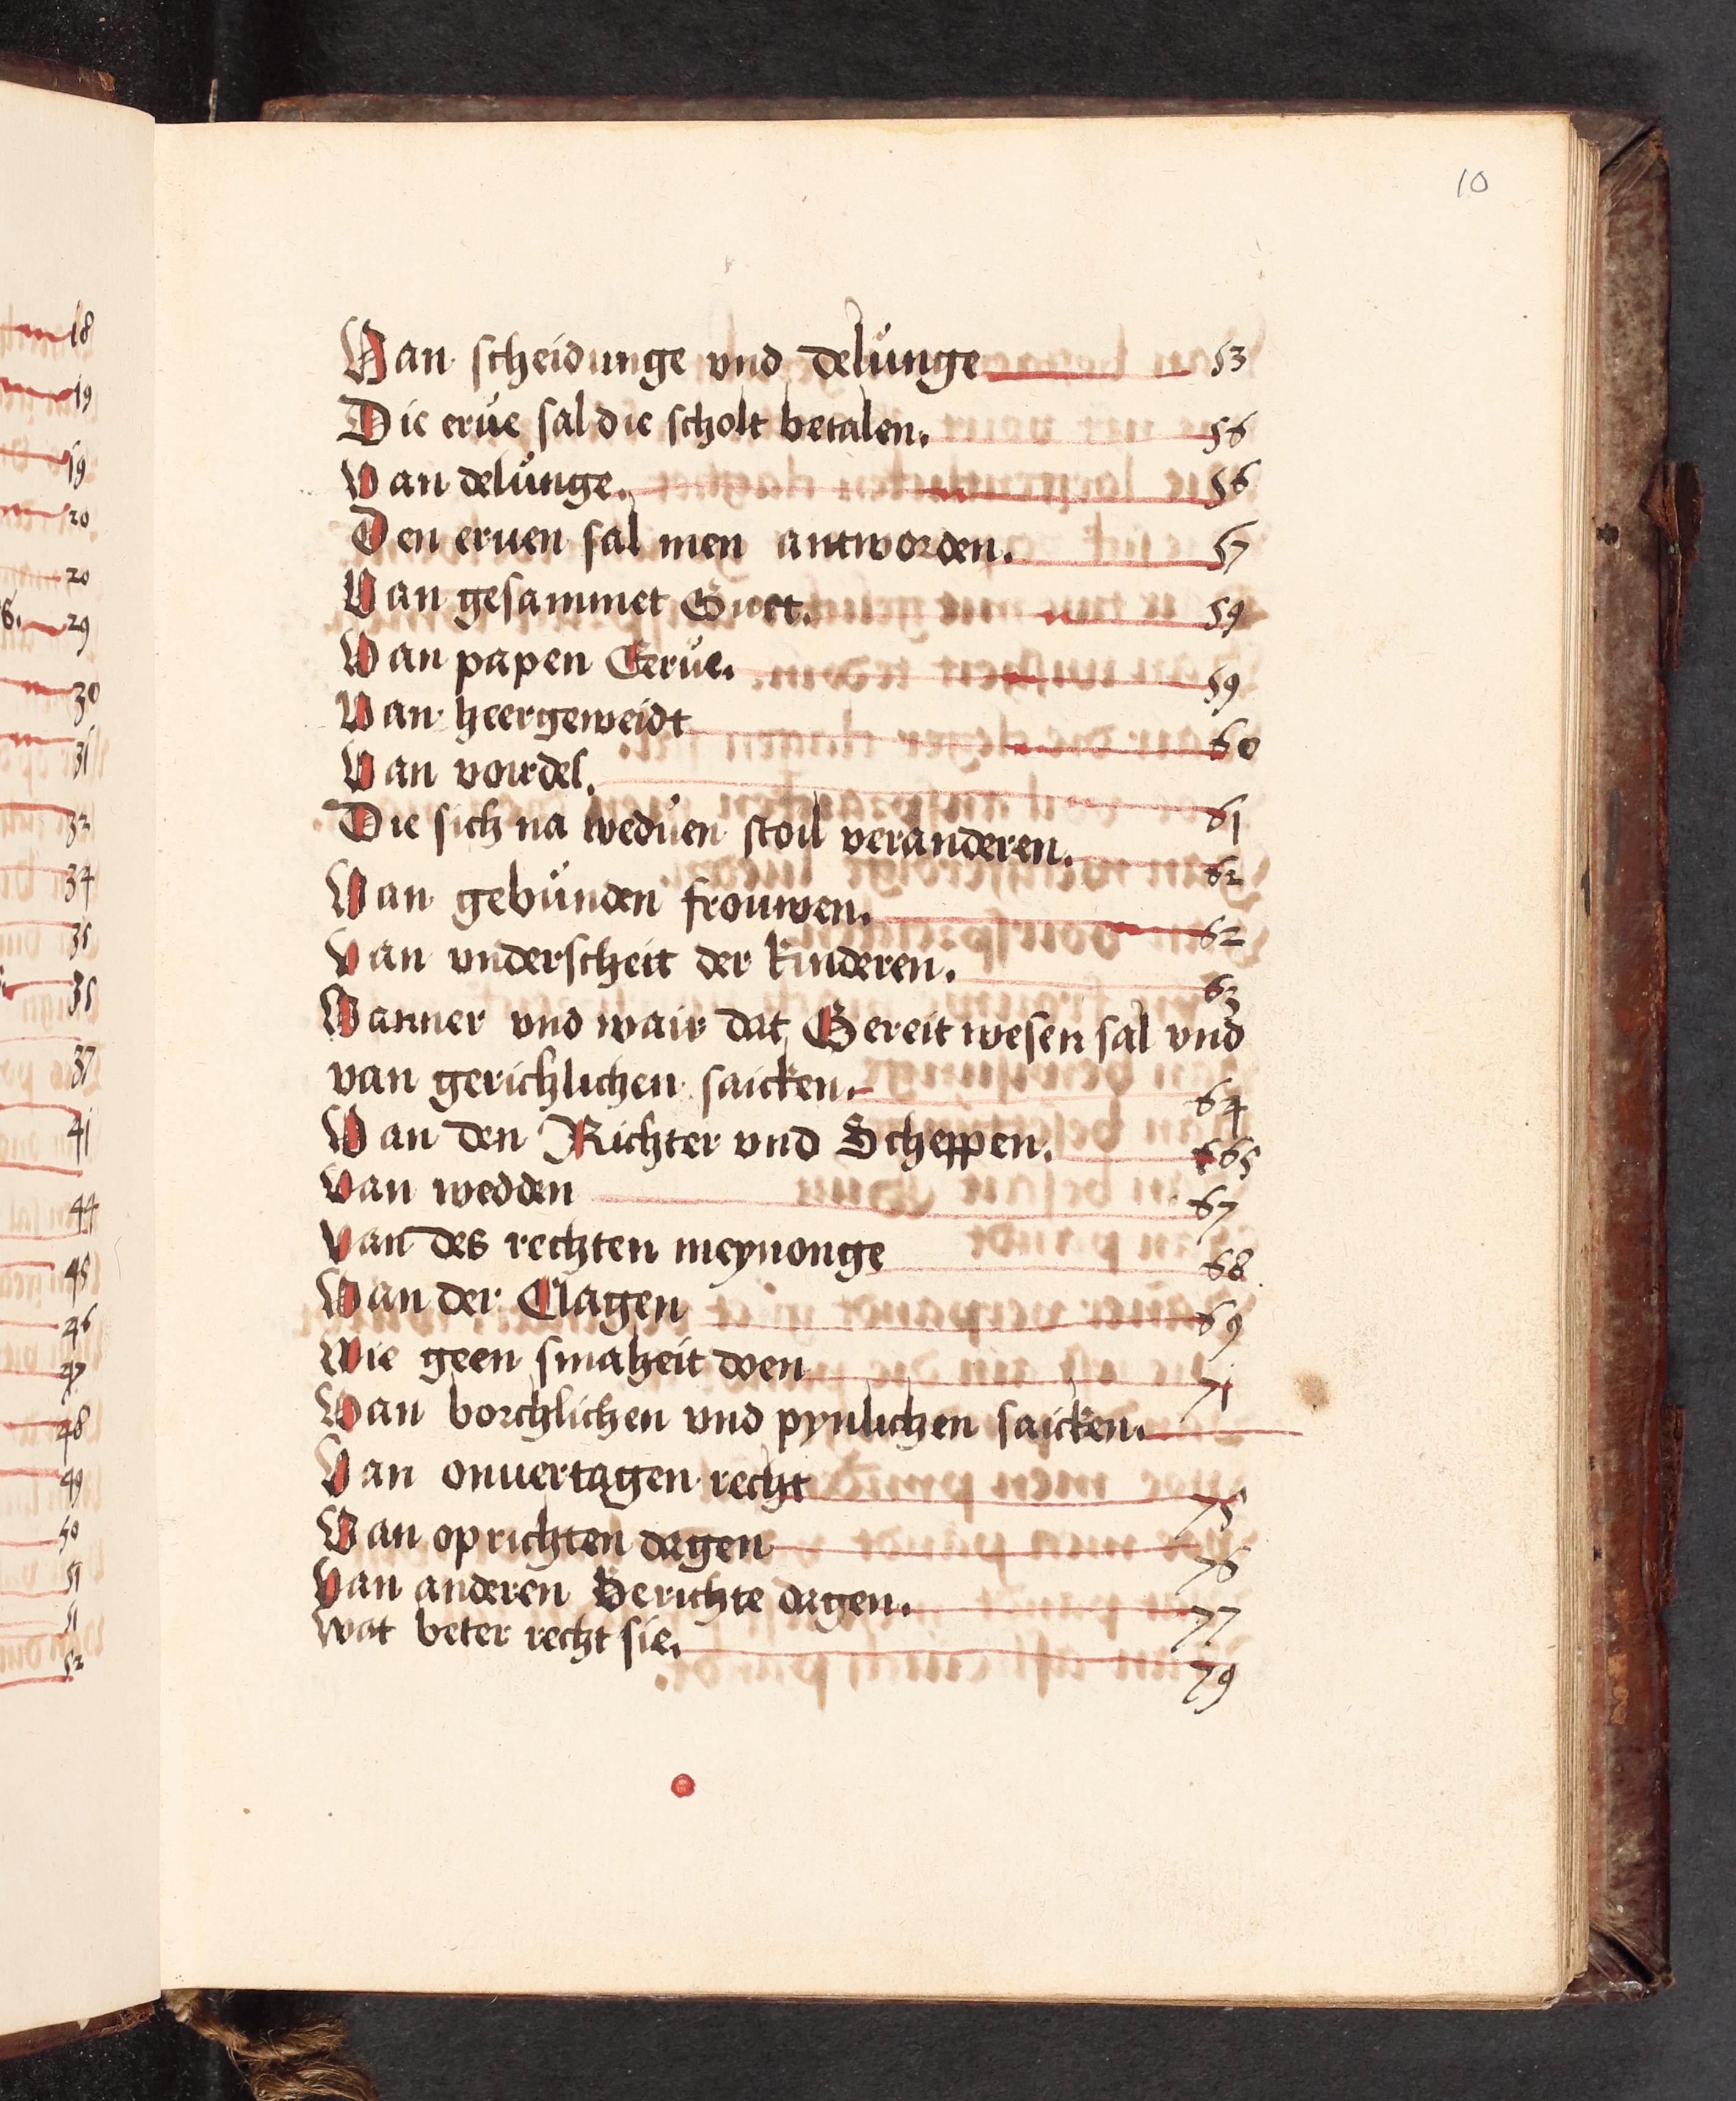 10
Van scheidunge vnd delunge 53
Die erue sal die scholt betalen. 56
Van delunge. 56
Den eruen sal men antworden. 57
Van gesammet Guet. 59
Van papen Eerue. 59
Van heergeweidt 60
Van vordel. 61
Die sich na weduen stoil veranderen. 62
Van gebunden frouwen. 62
Van vnderscheit der kinderen. 63
Wanner vnd wair dat Gereit wesen sal vnd
van gerichlichen saicken. 64
Van den Richter vnd Scheppen. 65
Van wedden 67
Van des rechten meynonge 68
Van der Clagen 69
Wie geen smaheit doen 71
Van borchlichen vnd pynlichen saicken.
Van onuertagen recht 75
Van oprichten dagen 76
Van anderen Gerichte dagen. 77
Wat beter recht sie. 79
18
19
19
20
20
29
30
31
32
34
35
35
37
41
44
45
46
47
48
49
50
51
51
52